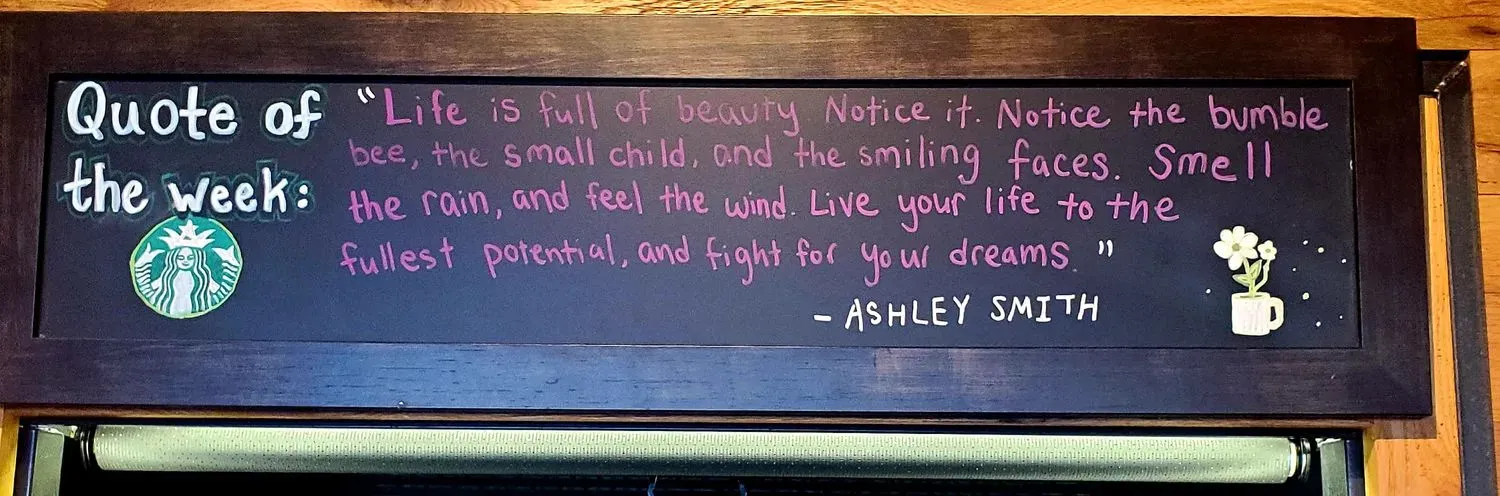 Quote of
the week:
"Life is full of beauty Notice it. Notice the bumble
bee, the small child, and the smiling faces. Smell
the rain, and feel the wind. Live your life to the
fullest potential, and fight for your dreams."
- ASHLEY SMITH